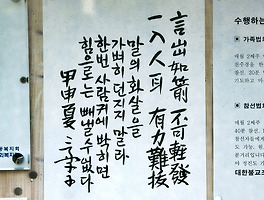 言出如箭 不可輕發
一入人耳 有力難拔
말의 화살을
가벼히 던지지 말라
한번 사람귀에 박히면
힘으로는 빼낼수 없다
甲申夏
수행하는
가족법회
매월 2째주
참선법회
매월 2째주
대한불교조